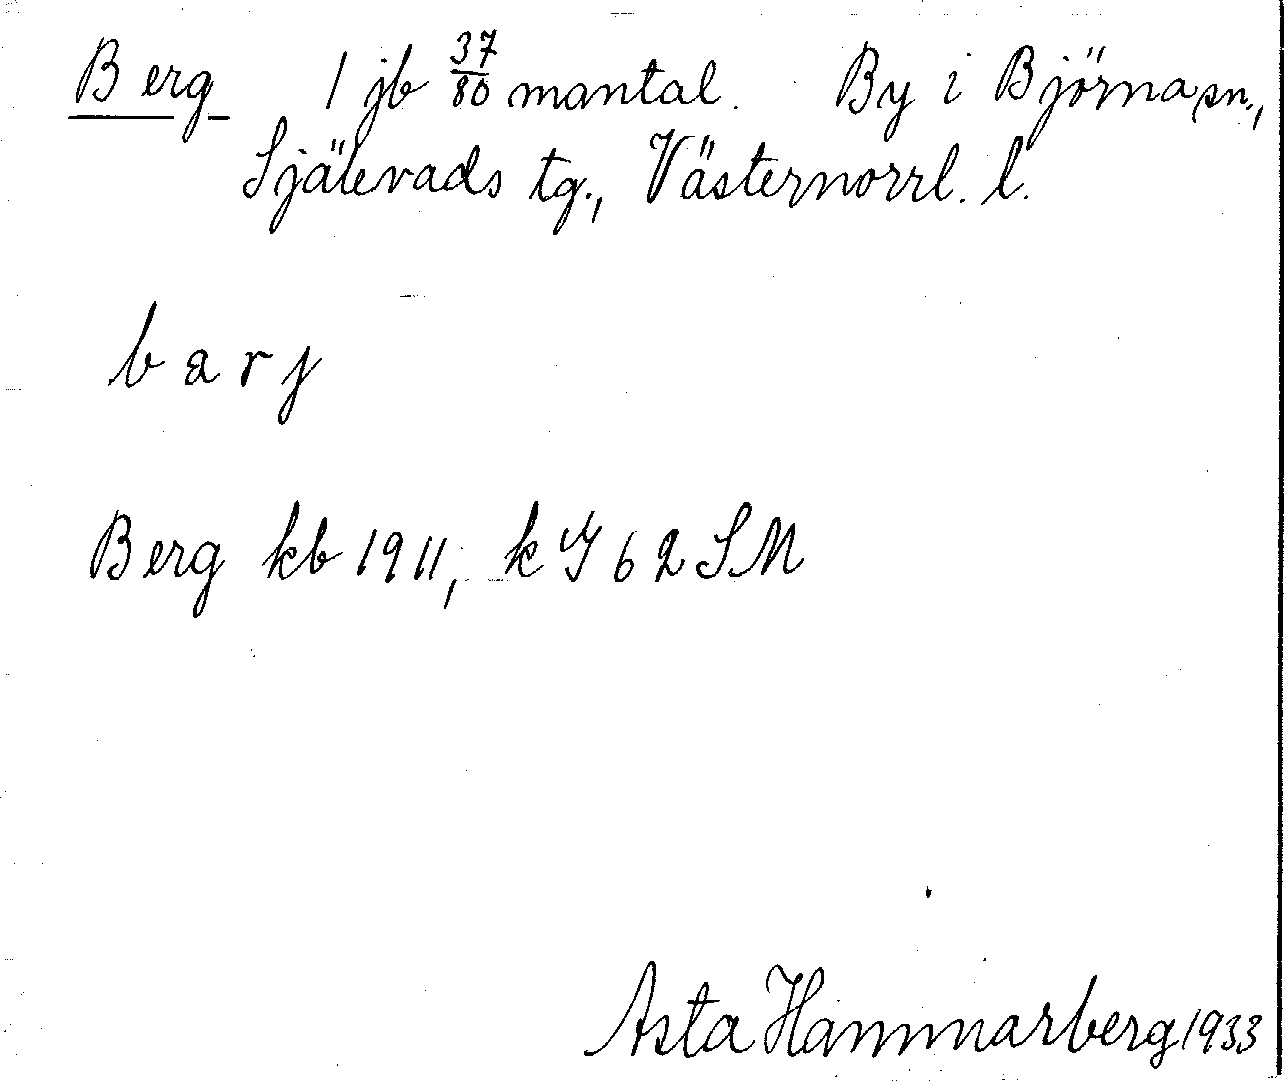 Berg 1 jb 37/80 mantal. By i Björna sn.,
Själevads tg., Västernorrl. l.
barj
Berg kb 1911, k Y 62 SM
Asta Hammarberg 1933